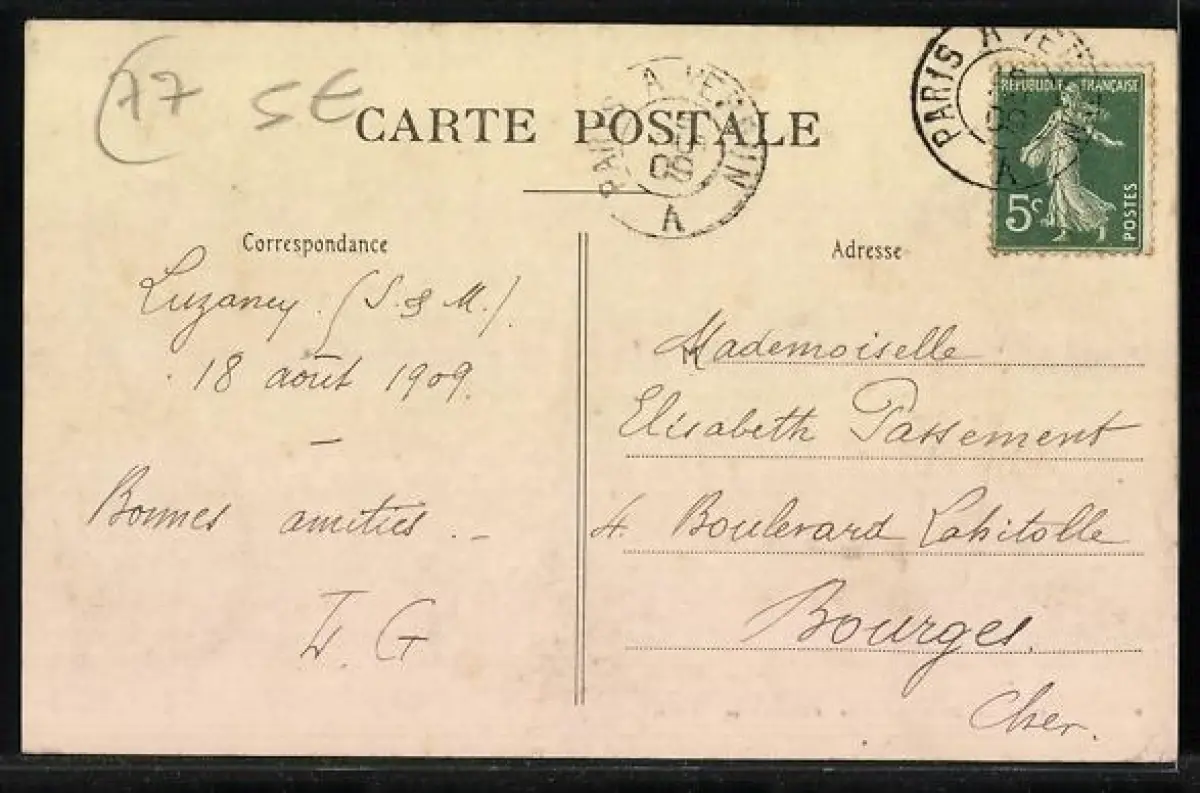 77 5€
CARTE POSTALE
PARIS A
A
PARIS A
A
RÉPUBLIQUE FRANÇAISE
5c
POSTES
Correspondance
Luzancy. (S. & M.).
18 août 1909.
Bonnes amitiés.
G
Adresse
Mademoiselle
Elisabeth Passement
4. Boulevard Lahitolle
Bourges.
Cher.